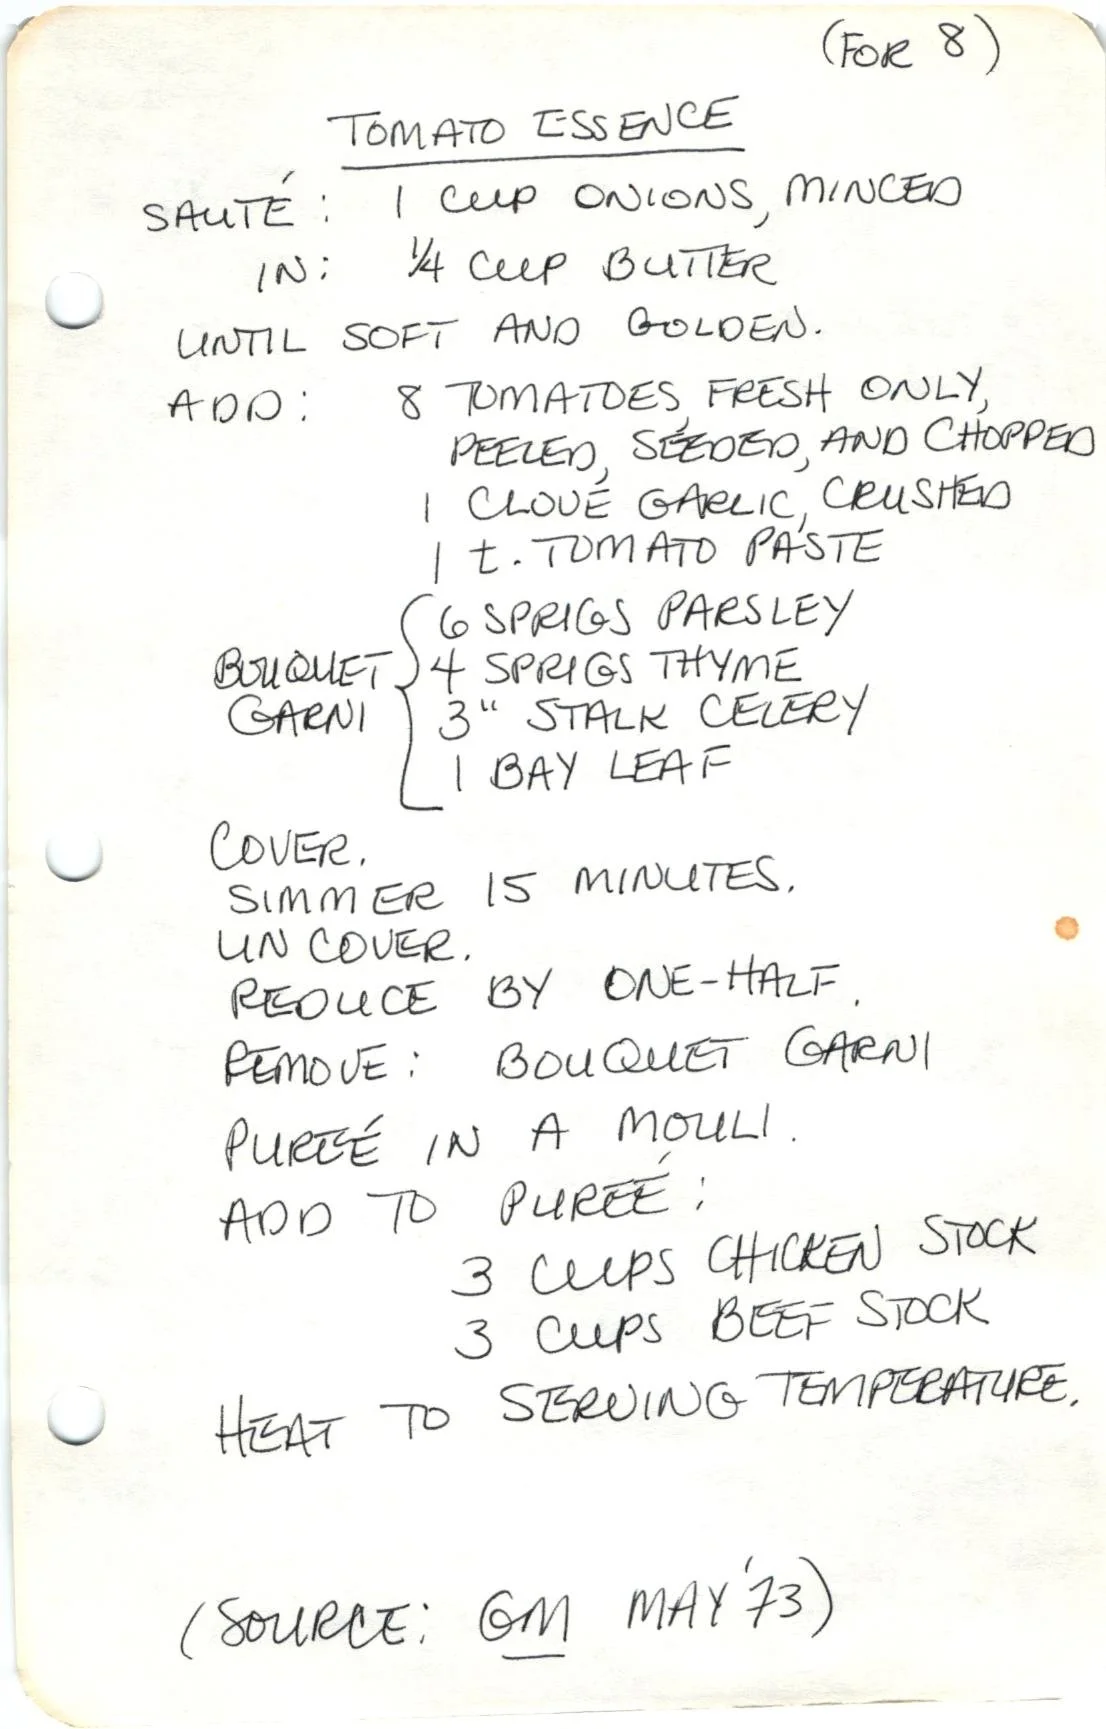 (FOR 8)
TOMATO ESSENCE
SAUTÉ: 1 CUP ONIONS, MINCED
IN: 1/4 CUP BUTTER
UNTIL SOFT AND GOLDEN.
ADD: 8 TOMATOES, FRESH ONLY,
PEELED, SEEDED, AND CHOPPED
1 CLOVE GARLIC, CRUSHED
1 t. TOMATO PASTE
6 SPRIGS PARSLEY
BOUQUET 4 SPRIGS THYME
GARNI 3" STALK CELERY
1 BAY LEAF
COVER.
SIMMER 15 MINUTES.
UNCOVER.
REDUCE BY ONE-HALF.
REMOVE: BOUQUET GARNI
PUREÉ IN A MOULI.
ADD TO PUREÉ:
3 CUPS CHICKEN STOCK
3 CUPS BEEF STOCK
HEAT TO SERVING TEMPERATURE.
(SOURCE: GM MAY '73)